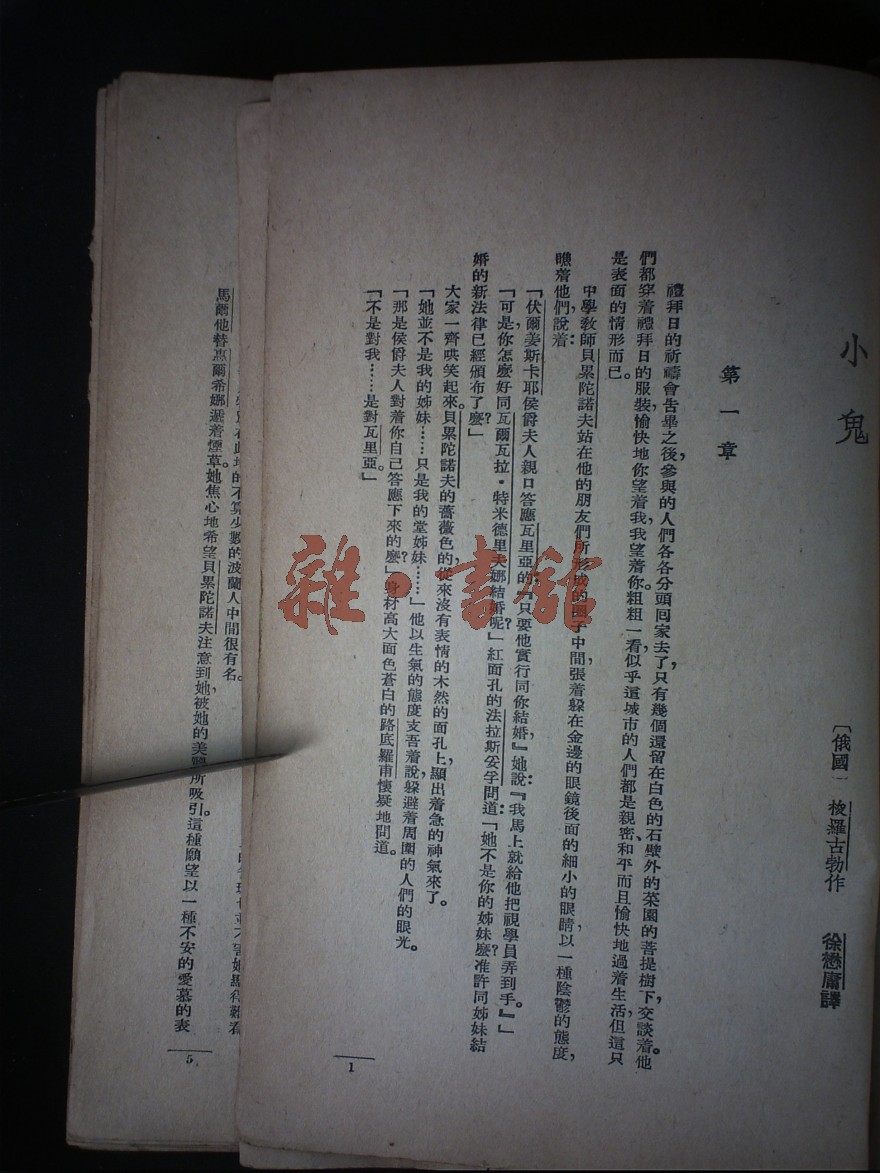 小鬼
〔俄國〕梭羅古勃作 徐懋庸譯
第一章
禮拜日的祈禱會告畢之後，參與的人們各各分頭回家去了，只有幾個還留在白色的石壁外的菜園的菩提樹下，交談着。他
們都穿着禮拜日的服裝，愉快地你望着我，我望着你。粗粗一看，似乎這城市的人們都是親密、和平而且愉快地過着生活，但這只
是表面的情形而已。
中學教師貝累陀諾夫站在他的朋友們所形成的圈子中間，張着躲在金邊的眼鏡後面的細小的眼睛，以一種陰鬱的態度，
瞧着他們，說着：
「伏爾姜斯卡耶侯爵夫人親口答應瓦里亞的，『只要他實行同你結婚，』她說：『我馬上就給他把視學員弄到手。』」
「可是你怎麽好同瓦爾瓦拉·特米德里夫娜結婚呢？」紅面孔的法拉斯妥孚問道：「她不是你的姊妹麽？准許同姊妹結
婚的新法律已經頒布了麽？」
大家一齊哄笑起來。貝累陀諾夫的薔薇色的，從來沒有表情的木然的面孔上，顯出着急的神氣來了。
「她並不是我的姊妹……只是我的堂姊妹……」他以生氣的態度支吾着說，躲避着周圍的人們的眼光。
「那是侯爵夫人對着你自己答應下來的麽？」身材高大面色蒼白的路底羅甫懷疑地問道。
「不是對我……是對瓦里亞。」
1
在此地的不算少數的波蘭人中間很有名。
馬爾他替惠爾希娜遞着煙草。她焦心地希望貝累陀諾夫注意到她，被她的美所吸引。這種願望以一種不安的愛慕的表
5
雜·書館